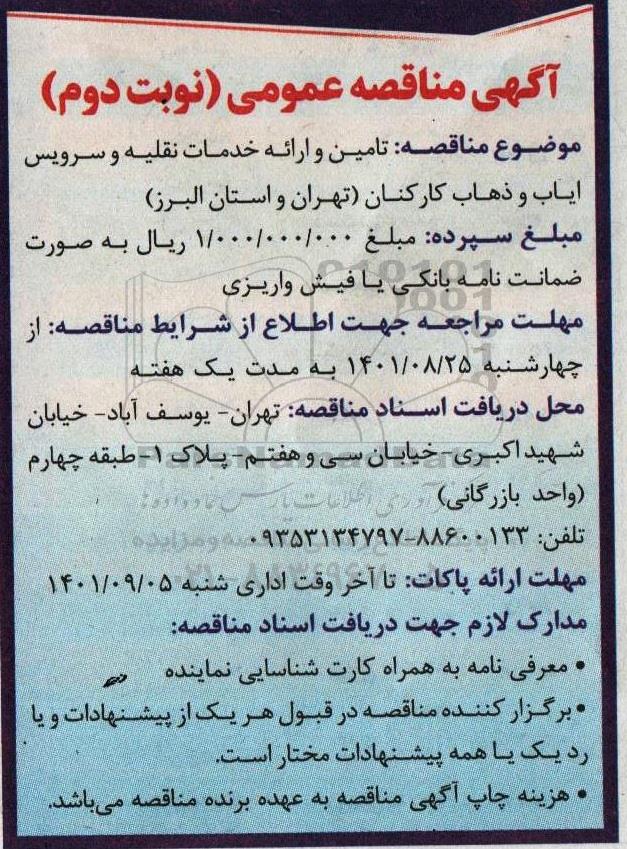 آگهی مناقصه عمومی (نوبت دوم)
موضوع مناقصه: تامین و ارائه خدمات نقلیه و سرویس
ایاب و ذهاب کارکنان (تهران و استان البرز)
مبلغ سپرده: مبلغ ۱/۰۰۰/۰۰۰/۰۰۰ ریال به صورت
ضمانت نامه بانکی یا فیش واریزی
مهلت مراجعه جهت اطلاع از شرایط مناقصه: از
چهارشنبه ۱۴۰۱/۰۸/۲۵ به مدت یک هفته
محل دریافت اسناد مناقصه: تهران- یوسف آباد- خیابان
شهید اکبری- خیابان سی و هفتم- پلاک ۱- طبقه چهارم
(واحد بازرگانی)
تلفن: ۸۸۶۰۰۱۳۳-۰۹۳۵۳۱۳۴۷۹۷
مهلت ارائه پاکات: تا آخر وقت اداری شنبه ۱۴۰۱/۰۹/۰۵
مدارک لازم جهت دریافت اسناد مناقصه:
• معرفی نامه به همراه کارت شناسایی نماینده
• برگزار کننده مناقصه در قبول هر یک از پیشنهادات و یا
رد یک یا همه پیشنهادات مختار است.
• هزینه چاپ آگهی مناقصه به عهده برنده مناقصه می‌باشد.